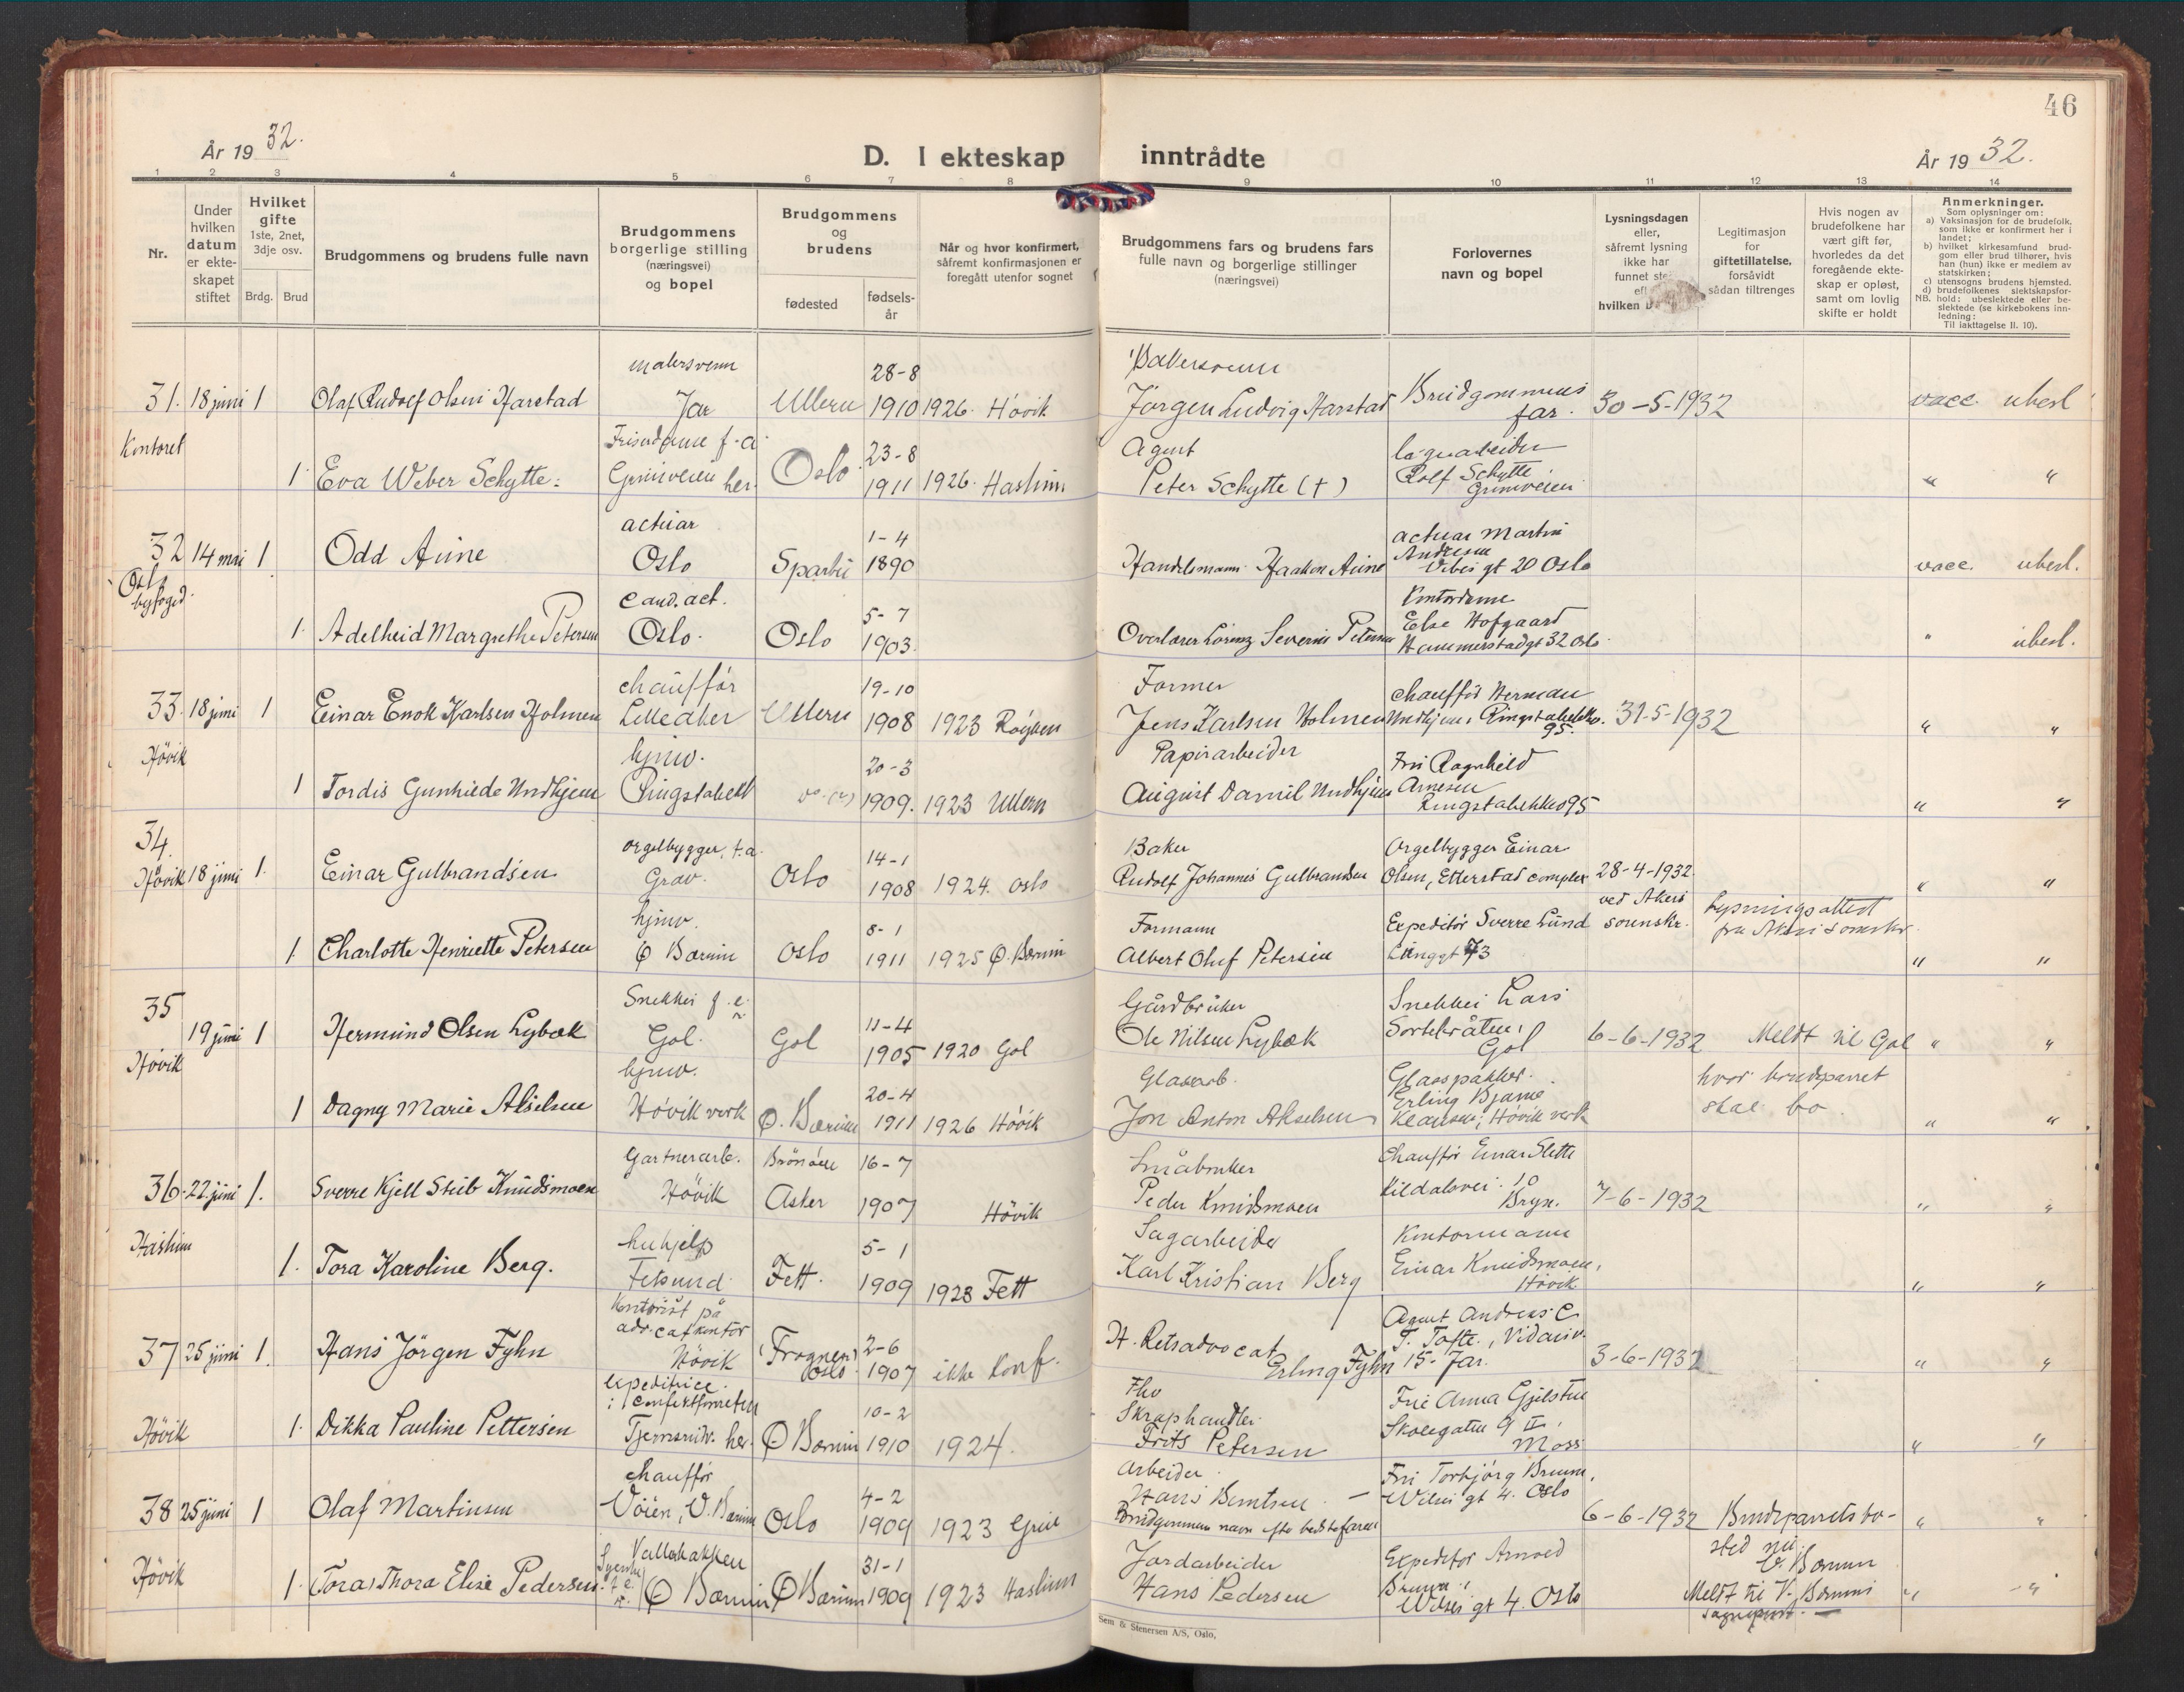 46
År 1932.
D. I ekteskap inntrådte
År 1932.
1 2 3 4 5 6 7 8 9 10 11 12 13 14
Nr.
Under hvilken datum er ekteskapet stiftet
Hvilket gifte
1ste, 2net, 3dje osv.
Brdg. Brud
Brudgommens og brudens fulle navn
Brudgommens borgerlige stilling (næringsvei) og bopel
Brudgommens og brudens
fødested
fødsels-år
Når og hvor konfirmert, såfremt konfirmasjonen er foregått utenfor sognet
Brudgommens fars og brudens fars fulle navn og borgerlige stillinger (næringsvei)
Forlovernes navn og bopel
Lysningsdagen eller, såfremt lysning ikke har funnet
hvilken
Legitimasjon for giftetillatelse, forsåvidt sådan tiltrenges
Hvis nogen av brudefolkene har vært gift før, hvorledes da det foregående ekteskap er opløst, samt om lovlig skifte er holdt
Anmerkninger.
Som oplysninger om:
a) Vaksinasjon for de brudefolk, som ikke er konfirmert her i landet;
b) hvilket kirkesamfund brudgom eller brud tilhører, hvis han (hun) ikke er medlem av statskirken;
c) utensogns brudens hjemsted.
d) brudefolkenes slektskapsforhold: ubeslektede eller beslektede (se kirkebokens innledning:
NB.
Til iakttagelse II. 10).
31. 18 juni 1 Olaf Rudolf Olsen Harstad
malersvenn
Jar
Ullern
28-8
1910 1926. Hövik
Bakersvenn
Jörgen Ludvig Harstad
Brudgommens far.
30-5-1932
vacc. ubesl
Kontoret
1 Eva Weber Schytte.
Frisørdame f. a.
Griniveien her.
Oslo
23-8
1911 1926. Haslum
Agent
Peter Schytte (†)
Rolf Schytte
Griniveien
" "
32 14 mai 1 Odd Aune
Oslo byfoged.
actuar
Oslo
Sparbu
1-4
1890
Handelsmann Haakon Aune
actuar Martin
Andresen
Vibes gt 20 Oslo
vacc. ubesl.
1. Adelheid Margrethe Petersen
cand. act.
Oslo.
Oslo
5-7
1903.
Overlærer Lorenz Severin Petersen
Kontordame
Else Hofgaard
Hammerstadgt 32 Oslo
" ubesl.
33. 18 juni 1 Einar Enok Karlsen Holmen
Hövik
chaufför
Lilleaker
Ullern
19-10
1908 1923 Röyken
Former
Jens Karlsen Holmen
chaufför Herman
Undhjem, Ringstabekkv. 95.
31-5-1932
" "
1 Tordis Gunhilde Undhjem
hjmv.
Ringstabekk
20-3
1909. 1923 Ullern
Papirarbeider
August Daniel Undhjem
Fru Ragnhild
Arnesen
Ringstabekkv 95
" "
34.
Hövik 18 juni 1. Einar Gulbrandsen
orgelbygger, f. a.
Grav.
Oslo
14-1
1908 1924. Oslo
Baker
Rudolf Johannes Gulbrandsen
Orgelbygger Einar
Olsen, Etterstad complex
28-4-1932
ved Akers sorenskr.
Lysningsattest
fra Akers sorenskr.
" "
1. Charlotte Henriette Petersen
hjmv.
Ø Bærum
Oslo
8-1
1911 1925 Ø. Bærum
Formann
Albert Oluf Petersen
Expeditör Sverre Lund
Langgt 73
" "
35 19 juni 1 Hermund Olsen Lybæk
Hövik
Snekker f. e. n.
Gol.
Gol
11-4
1905 1920 Gol
Gårdbruker
Ole Nilsen Lybæk
Snekker Lars
Sortebråten,
Gol
6-6-1932
Meldt til Gol
hvor brudeparret
skal bo.
" "
1 Dagny Marie Akselsen
hjmv.
Hövik verk
Ø. Bærum
20-4
1911 1926 Hövik
Glassarb.
Jon Anton Akselsen
Glasspakker
Erling Bjarne
Klausen; Hövik verk
" "
36. 22 juni 1. Sverre Kjell Steib Knudsmoen
Haslum
Gartnerarb.
Hövik
Asker
16-7
1907 Hövik
Småbruker
Peder Knudsmoen
Chaufför Einar Slette
Kildalsvei. 10
Bryn.
7-6-1932
" "
1. Tora Karoline Berg.
hushjelp
Fetsund.
Fett.
5-1
1909 1923 Fett
Sagarbeider
Karl Kristian Berg
Kontormann
Einar Knudsmoen,
Hövik
" "
37 25 juni 1. Hans Jörgen Fyhn
Hövik
Kontorist på
advocatkontor
Hövik
(Frogner)
Oslo
2-6
1907 ikke konf.
H. Retsadvocat
Erling Fyhn
Agent Andreas C.
T. Tofte, Vidarsv.
15. Jar.
3-6-1932
" "
1. Dikka Pauline Pettersen
expeditrice
i confektforretn
Tjernsrudv. her.
Ø Bærum
10-2
1910 1924.
Fhv
Skraphandler.
Frits Petersen
Frk Anna Gjelsten
Skolegaten 9 II,
Moss
" "
38 25 juni 1 Olaf Martinsen
Hövik
chaufför
Vöien, V. Bærum
Oslo
4-2
1909 1923 Grue
Arbeider
Hans Berntsen
Brudgommen navn efter bedstefaren
Fru Torbjörg Bruun,
Wilses gt 4. Oslo
6-6-1932
Brudeparrets bosted nu:
V. Bærum
" "
1. (Tora) Thora Elise Pedersen
Vallerbakken
Ø Bærum
Ø Bærum
31-1
1909 1923 Haslum
Jordarbeider
Hans Pedersen
Expeditör Arnved
Bruun,
Wilses gt 4. Oslo
Meldt til V. Bærum
sogneprest.
" "
Sem & Stenersen A/S, Oslo,